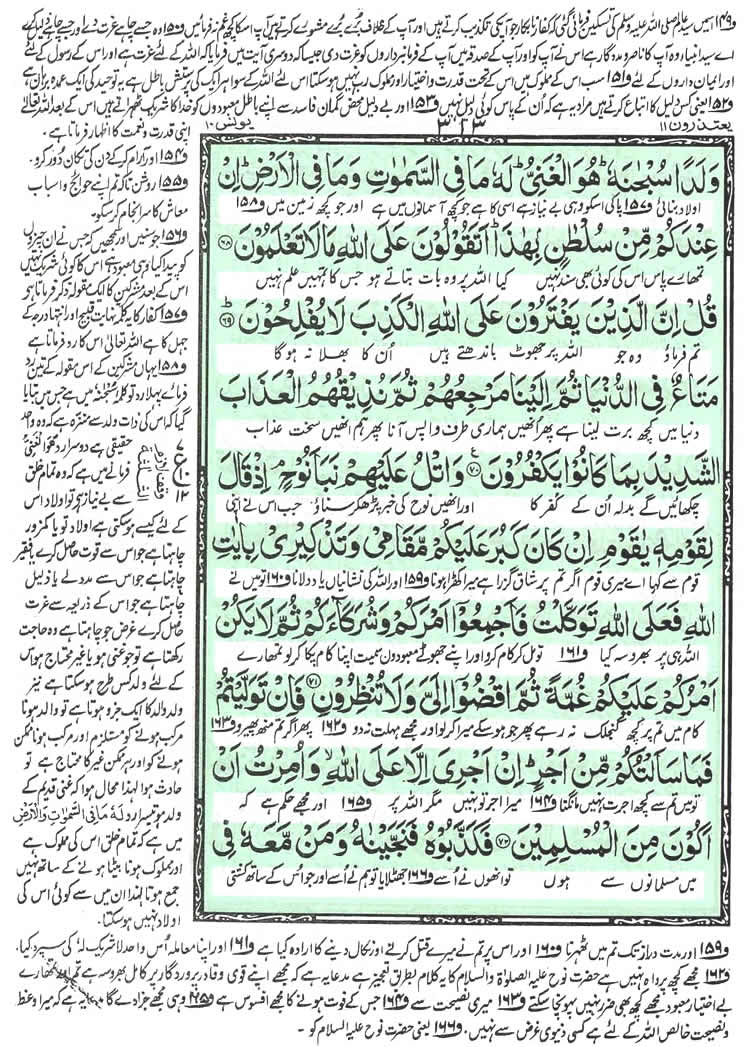 و۱۴۹ اس میں سید عالم صلی اللہ علیہ وسلم کی تسکین فرمائی گئی کہ کفار نابکار جو آپ کی تکذیب کرتے ہیں اور آپ کے خلاف برے برے مشورے کرتے ہیں آپ اس کا کچھ غم نہ فرمائیں و۱۵۰ وہ جسے چاہے عزت دے اور جسے چاہے ذلیل کرے
اے سید انبیا وہ آپ کا ناصر و مددگار ہے اس نے آپ کو اور آپ کے صدقہ میں آپ کے فرمانبرداروں کو عزت دی جیسا کہ دوسری آیت میں فرمایا کہ اللہ کے لئے عزت ہے اور اس کے رسول کے لئے
اور ایمان داروں کے لئے و۱۵۱ سب اس کے مملوک ہیں اس کے تحت قدرت و اختیار اور مملوک رب نہیں ہوسکتا اس لئے اللہ کے سوا ہر ایک کی پرستش باطل ہے یہ توحید کی ایک عمدہ برہان ہے
و۱۵۲ یعنی کس دلیل کا اتباع کرتے ہیں مراد یہ ہے کہ ان کے پاس کوئی دلیل نہیں و۱۵۳ اور بے دلیل محض گمان فاسد سے اپنے باطل معبودوں کو خدا کا شریک ٹھہراتے ہیں اس کے بعد اللہ تعالیٰ
یعتذرون ۱۱
۳۱۳
یونس ۱۰
اپنی قدرت و نعمت کا اظہار فرماتا ہے ۔
و۱۵۴ اور آرام کرکے دن کی تکان دور کرو ۔
و۱۵۵ روشن تاکہ تم اپنے حوائج و اسباب
معاش کا سرانجام کرسکو ۔
و۱۵۶ جو سنیں اور سمجھیں کہ جس نے ان چیزوں
کو پیدا کیا وہی معبود ہے اس کا کوئی شریک نہیں
اس کے بعد مشرکین کا ایک مقولہ ذکر فرماتا ہے
و۱۵۷ کفار کا یہ کلمہ نہایت قبیح اور انتہا درجہ کے
جہل کا ہے اللہ تعالیٰ اس کا رد فرماتا ہے
و۱۵۸ یہاں مشرکین کے اس مقولہ کے تین رد
فرمائے پہلا رد تو کلمہ سُبْحٰنَہٗ میں ہے جس میں بتایا
گیا کہ اس کی ذات ولد سے منزہ ہے کہ وہ واحد
حقیقی ہے دوسرا رد ھُوَ الْغَنِیُّ
فرمانے میں ہے کہ وہ تمام خلق
سے بے نیاز ہے تو اولاد اس
کے لئے کیسے ہوسکتی ہے اولاد تو یا کمزور
چاہتا ہے جو اس سے قوت حاصل کرے یا فقیر
چاہتا ہے جو اس سے مدد لے یا ذلیل
چاہتا ہے جو اس کے ذریعہ سے عزت
حاصل کرے غرض جو چاہتا ہے وہ حاجت
رکھتا ہے تو جو غنی ہو یا غیر محتاج ہو اس
کے لئے ولد کس طرح ہوسکتا ہے نیز
ولد والد کا ایک جزو ہوتا ہے تو والد ہونا
مرکب ہونے کو مستلزم اور مرکب ہونا ممکن
ہونے کو اور ہر ممکن غیر کا محتاج ہے تو
حادث ہوا لہذا محال ہوا کہ غنی قدیم کے
ولد ہو تیسرا رد لَہٗ مَا فِی السَّمٰوٰتِ وَالْاَرْضِ
میں ہے کہ تمام خلق اس کی مملوک ہے
اور مملوک ہونا بیٹا ہونے کے ساتھ نہیں
جمع ہوتا لہذا ان میں سے کوئی اس کی
اولاد نہیں ہوسکتا ۔
وَلَدًا سُبْحٰنَهٗ ؕ هُوَ الْغَنِیُّ ؕ لَهٗ مَا فِی السَّمٰوٰتِ وَمَا فِی الْاَرْضِ ؕ اِنْ
اولاد بنائی و۱۵۷ پاکی اس کو وہی بے نیاز ہے اسی کا ہے جو کچھ آسمانوں میں ہے اور جو کچھ زمین میں و۱۵۸
عِنْدَكُمْ مِّنْ سُلْطٰنٍۭ بِهٰذَا ؕ اَتَقُوْلُوْنَ عَلَی اللّٰهِ مَا لَا تَعْلَمُوْنَ ۶۸
تمہارے پاس اس کی کوئی بھی سند نہیں کیا اللہ پر وہ بات بتاتے ہو جس کا تمہیں علم نہیں
قُلْ اِنَّ الَّذِیْنَ یَفْتَرُوْنَ عَلَی اللّٰهِ الْكَذِبَ لَا یُفْلِحُوْنَ ؕ ۶۹
تم فرماؤ وہ جو اللہ پر جھوٹ باندھتے ہیں ان کا بھلا نہ ہوگا
مَتَاعٌ فِی الدُّنْیَا ثُمَّ اِلَیْنَا مَرْجِعُهُمْ ثُمَّ نُذِیْقُهُمُ الْعَذَابَ
دنیا میں کچھ برت لینا ہے پھر انھیں ہماری طرف واپس آنا پھر ہم انھیں سخت عذاب
الشَّدِیْدَ بِمَا كَانُوْا یَكْفُرُوْنَ ۷۰ وَاتْلُ عَلَیْهِمْ نَبَاَ نُوْحٍ ۘ اِذْ قَالَ
چکھائیں گے بدلہ ان کے کفر کا اور انھیں نوح کی خبر پڑھ کر سناؤ جب اس نے اپنی
لِقَوْمِهٖ یٰقَوْمِ اِنْ كَانَ كَبُرَ عَلَیْكُمْ مَّقَامِیْ وَتَذْكِیْرِیْ بِاٰیٰتِ
قوم سے کہا اے میری قوم اگر تم پر شاق گزرا ہے میرا کھڑا ہونا و۱۵۹ اور اللہ کی نشانیاں یاد دلانا و۱۶۰ تو میں نے
اللّٰهِ فَعَلَی اللّٰهِ تَوَكَّلْتُ فَاَجْمِعُوْۤا اَمْرَكُمْ وَشُرَكَآءَكُمْ ثُمَّ لَا یَكُنْ
اللہ ہی پر بھروسہ کیا و۱۶۱ تو مل کر کام کرو اور اپنے جھوٹے معبودوں سمیت اپنا کام پکا کرلو تمہارے
اَمْرُكُمْ عَلَیْكُمْ غُمَّةً ثُمَّ اقْضُوْۤا اِلَیَّ وَلَا تُنْظِرُوْنِ ۷۱ فَاِنْ تَوَلَّیْتُمْ
کام میں تم پر کچھ گنجلک نہ رہے پھر جو ہوسکے میرا کرلو اور مجھے مہلت نہ دو و۱۶۲ پھر اگر تم منہ پھیرو و۱۶۳
فَمَا سَاَلْتُكُمْ مِّنْ اَجْرٍ ؕ اِنْ اَجْرِیَ اِلَّا عَلَی اللّٰهِ ۙ وَاُمِرْتُ اَنْ
تو میں تم سے کچھ اجرت نہیں مانگتا و۱۶۴ میرا اجر تو نہیں مگر اللہ پر و۱۶۵ اور مجھے حکم ہے کہ
اَكُوْنَ مِنَ الْمُسْلِمِیْنَ ۷۲ فَكَذَّبُوْهُ فَنَجَّیْنٰهُ وَمَنْ مَّعَهٗ فِی
میں مسلمانوں سے ہوں تو انھوں نے اسے و۱۶۶ جھٹلایا تو ہم نے اسے اور جو اس کے ساتھ کشتی
و۱۵۹ اور مدت دراز تک تم میں ٹھہرنا و۱۶۰ اور اس پر تم نے میرے قتل کرنے اور نکال دینے کا ارادہ کیا ہے و۱۶۱ اور اپنا معاملہ اس واحد لاشریک لہٗ کی سپرد کیا ۔
و۱۶۲ مجھے کچھ پرواہ نہیں ہے حضرت نوح علیہ الصلوٰۃ والسلام کا یہ کلام بطریق تعجیز ہے مدعا یہ ہے کہ مجھے اپنے قوی و قادر پروردگار پر کامل بھروسہ ہے تم اور تمہارے
بے اختیار معبود مجھے کچھ بھی ضرر نہیں پہونچا سکتے و۱۶۳ میری نصیحت سے و۱۶۴ جس کے فوت ہونے کا مجھے افسوس ہے و۱۶۵ وہی مجھے جزا دے گا مدعا یہ ہے کہ میرا وعظ
و نصیحت خالص اللہ کے لئے ہے کسی دنیوی غرض سے نہیں ۔ و۱۶۶ یعنی حضرت نوح علیہ السلام کو ۔